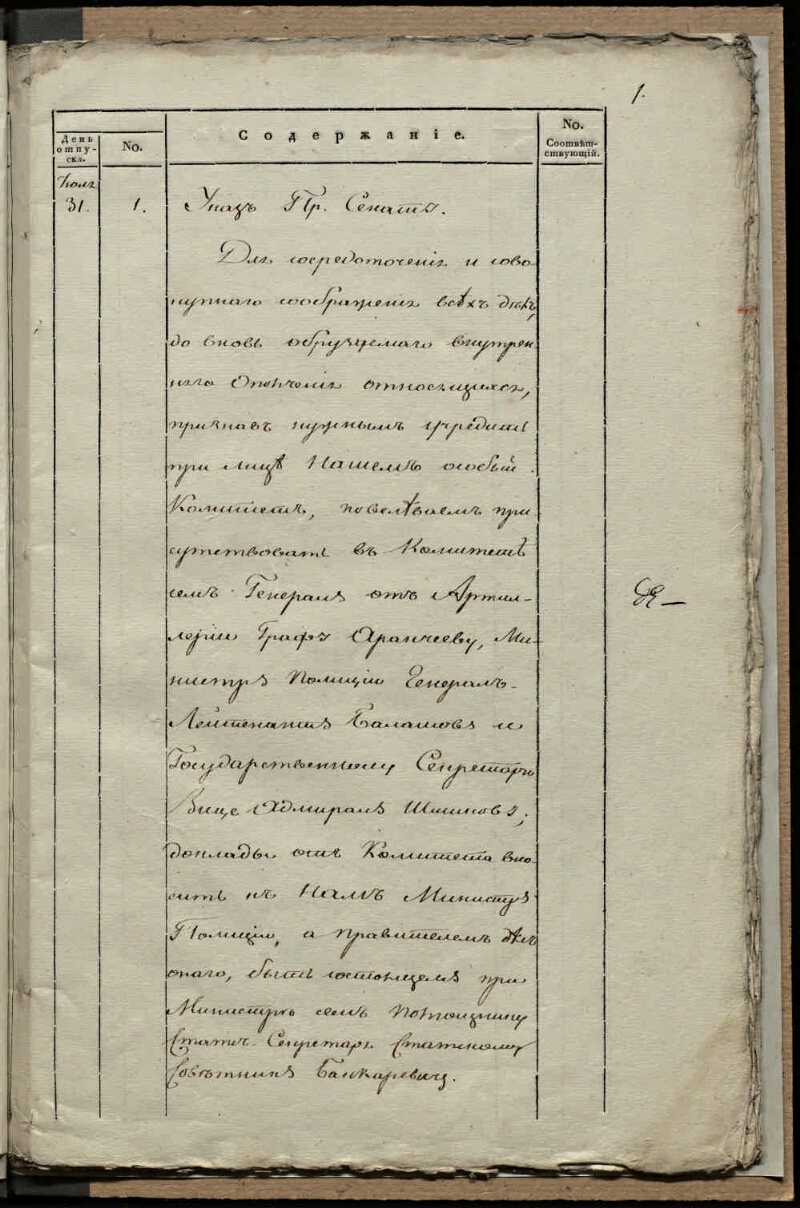 1.
День
отпу-
ска.
No.
Содержаніе.
No.
Соотвѣт-
ствующій.
Іюля
31.
1.
Указъ Пр. Сенату.
Для сосредоточенія и сово
купнаго соображенія всѣхъ дѣлъ,
до вновь образуемаго внутрен
няго Ополченія относящихся,
признавъ нужнымъ учредить
при лицѣ Нашемъ особый
Комитетъ, повелѣваемъ при
сутствовать въ Комитетѣ
семъ Генералу отъ Артил-
леріи Графу Аракчееву, Ми-
нистру Полиціи Генералъ-
Лейтенанту Балашову и
Государственному Секретарю
Вице Адмиралу Шишкову;
доклады сего Комитета вно
сить къ Намъ Министру
Полиціи, а правителемъ дѣлъ
онаго, быть состоящему при
Министрѣ семъ Помощнику
Статсъ Секретаря Статскому
Совѣтнику Бакаревичу.